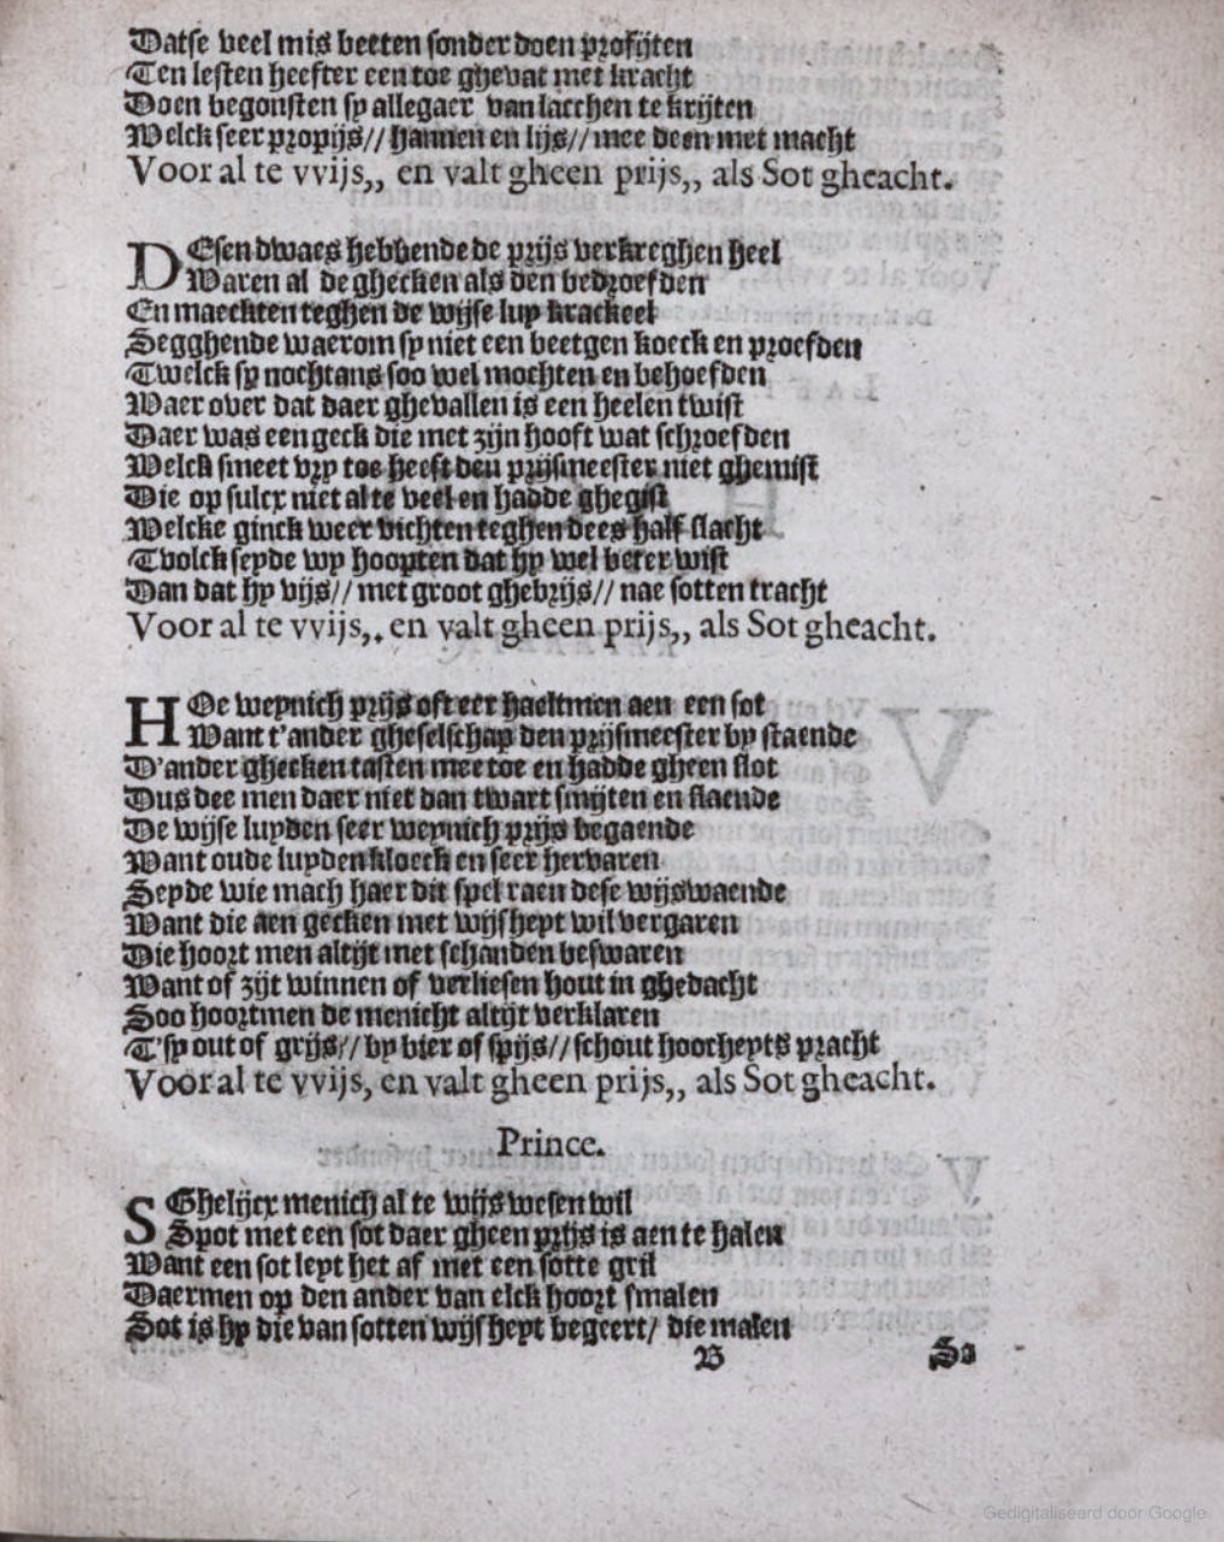 Datse veel mis beeten sonder doen profijten
Ten lesten heefter een toe ghevat met kracht
Doen begonsten sy allegaer van lacchen te krijten
Welck seer propijs// hannen en lijs// mee deen met macht
Voor al te vvijs,, en valt gheen prijs,, als Sot gheacht.
DEsen dwaes hebbende de prijs verkreghen heel
Waren al de ghecken als den bedroefden
En maeckten teghen de wijse luy krackeel
Segghende waerom sy niet een beetgen koeck en proefden
Twelck sy nochtans soo wel mochten en behoefden
Waer over dat daer ghevallen is een heelen twist
Daer was een geck die met zijn hooft wat schroefden
Welck smeet vry toe heeft den prijsmeester niet ghemist
Die op sulcx niet al te veel en hadde ghegist
Welcke ginck weer vichten teghen dees half slacht
Tvolck seyde wy hoopten dat hy wel beter wist
Dan dat hy vijs// met groot ghebrijs// nae sotten tracht
Voor al te vvijs,, en valt gheen prijs,, als Sot gheacht.
HOe weynich prijs oft eer haeltmen aen een sot
Want t'ander gheselschap den prijsmeester by staende
D'ander ghecken tasten mee toe en hadde gheen slot
Dus dee men daer niet dan twart smijten en slaende
De wijse luyden seer weynich prijs begaende
Want oude luyden kloeck en seer hervaren
Seyde wie mach haer dit spel raen dese wijswaende
Want die aen gecken met wijsheyt wil vergaren
Die hoort men altijt met schanden beswaren
Want of zijt winnen of verliesen hout in ghedacht
Soo hoortmen de menicht altijt verklaren
T'sy out of grijs// by bier of spijs// schout hoocheyts pracht
Voor al te vvijs, en valt gheen prijs,, als Sot gheacht.
Prince.
SGhelijcx menich al te wijs wesen wil
Spot met een sot daer gheen prijs is aen te halen
Want een sot leyt het af met een sotte gril
Daermen op den ander van elck hoort smalen
Sot is hy die van sotten wijsheyt begeert/ die malen
B So
Gedigitaliseerd door Google